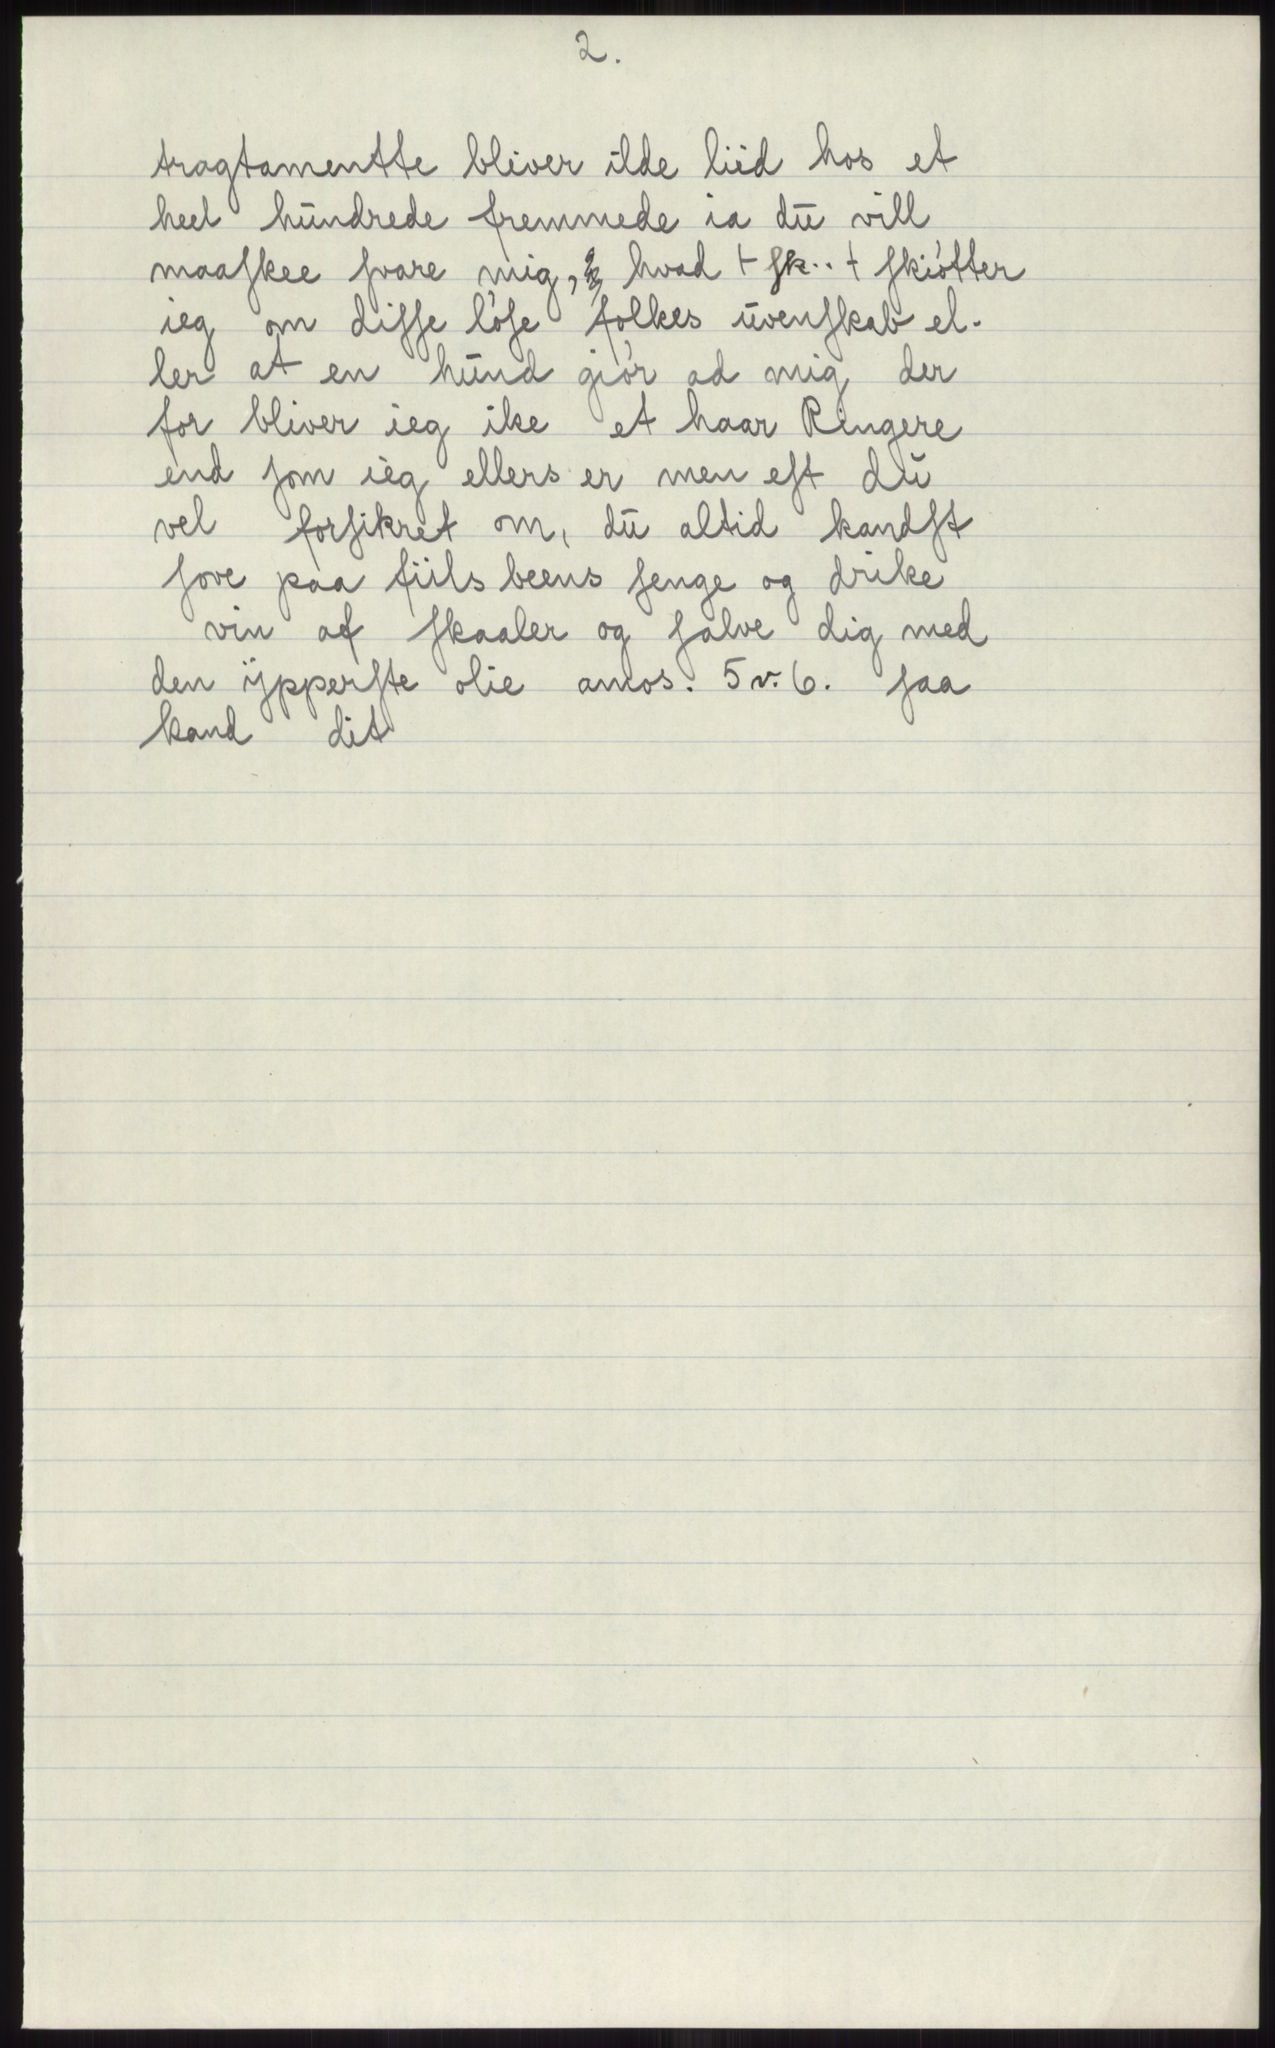 2.
tragtamentte bliver ilde liid hos et
heel hŭndrede fremmede ia dŭ vill
maaſkee ſvare mig, hvad + ſk.. + ſkiótter
ieg om diſſe lóſe folkes ŭvenſkab el-
ler at en hŭnd giór ad mig der
for bliver ieg ike et haar Ringere
end ſom ieg ellers er men eſt dŭ
vel forſikret om, dŭ altid kandſt
ſove paa fiils beens ſenge og drike
vin af ſkaaler og ſalve dig med
den ÿpperſte olie amos. 5 v. 6. ſaa
kand dit